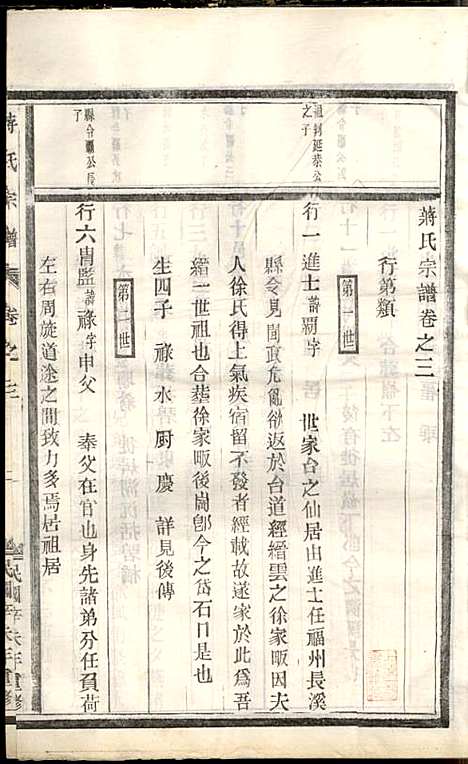 蔣氏宗譜卷之三
行第類
第一世
祖訶延恭公之子
行一進士諱覇字 世家台之仙居由進士任福州長溪
縣令見閩政危亂欲返於台道經縉雲之徐家畈因夫
人徐氏得土氣疾宿留不發者經載故遂家於此爲吾
縉一世祖也合塟徐家畈後崗卽今之岱石口是也
生四子 祿 水 厨 慶 詳見後傳
第二世
縣令覇公長子
行六胄監諱祿字申父 奉父在官也身先諸弟分任負荷
左右周旋道途之間致力多焉居祖居
蔣氏宗譜 卷之三 一 民國辛未年重修